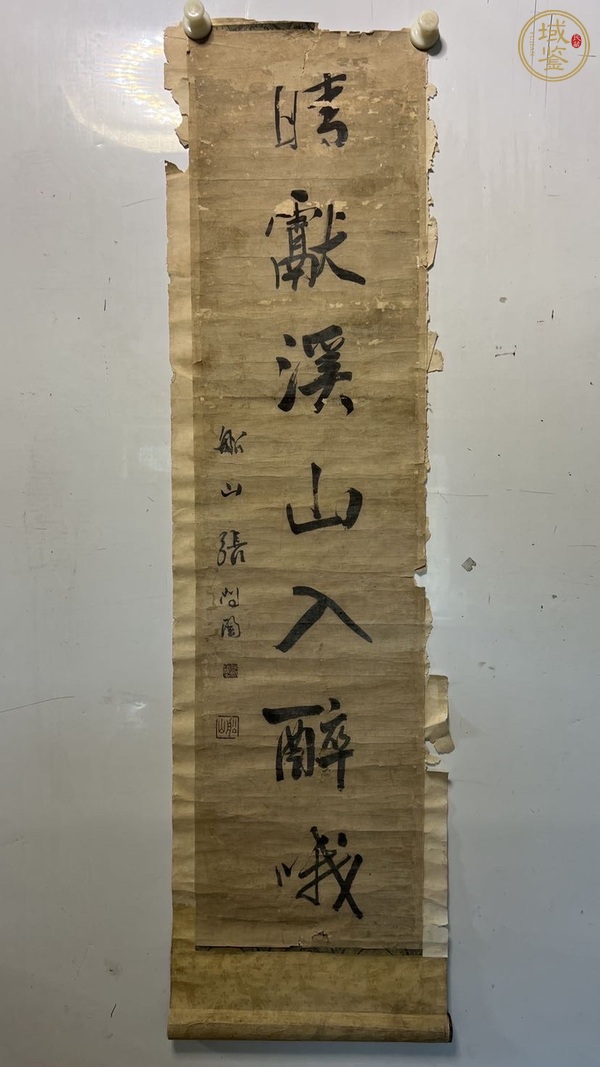 晴獻溪山入醉哦
船山張問陶
船山
域鉴